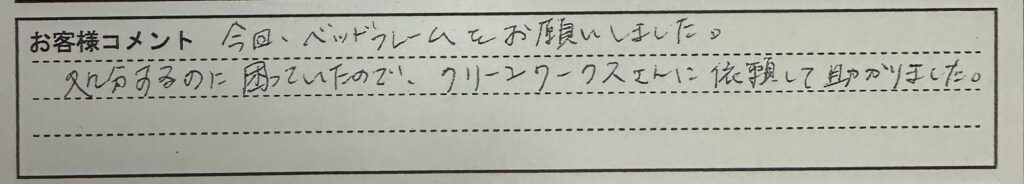 お客様コメント 今回、ベッドフレームをお願いしました。
処分するのに困っていたので、クリーンワークスさんに依頼して助かりました。